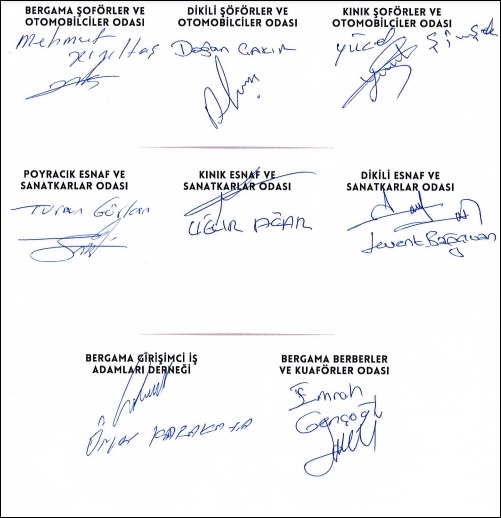 BERGAMA ŞOFÖRLER VE
OTOMOBİLCİLER ODASI
Mehmet
Kızıltaş
DİKİLİ ŞOFÖRLER VE
OTOMOBİLCİLER ODASI
Doğan ÇAKIR
KINIK ŞOFÖRLER VE
OTOMOBİLCİLER ODASI
Yücel Şimşek
POYRACIK ESNAF VE
SANATKARLAR ODASI
Turan
KINIK ESNAF VE
SANATKARLAR ODASI
UĞUR AĞAR
DİKİLİ ESNAF VE
SANATKARLAR ODASI
Levent
BERGAMA GİRİŞİMCİ İŞ
ADAMLARI DERNEĞİ
Ömer
BERGAMA BERBERLER
VE KUAFÖRLER ODASI
Emrah